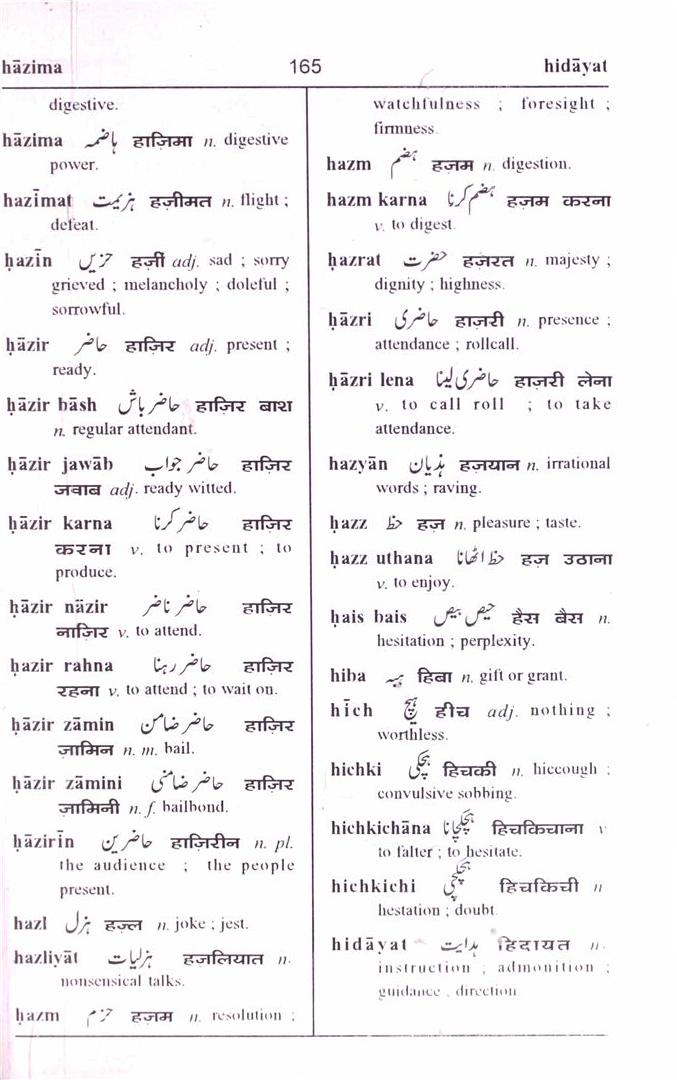 hāzima 165 hidāyat
digestive.
hāzima ہاضمہ हाज़िमा n. digestive
power.
hazīmat ہزیمت हज़ीमत n. flight ;
defeat.
ḥazīn حزیں हज़ीं adj. sad ; sorry
grieved ; melancholy ; doleful ;
sorrowful.
ḥāzir حاضر हाज़िर adj. present ;
ready.
ḥāzir bāsh حاضر باش हाज़िर बाश
n. regular attendant.
ḥāzir jawāb حاضر جواب हाज़िर
जवाब adj. ready witted.
ḥāzir karna حاضر کرنا हाज़िर
करना v. to present ; to
produce.
ḥāzir nāzir حاضر ناضر हाज़िर
नाज़िर v. to attend.
ḥazir rahna حاضر رہنا हाज़िर
रहना v. to attend ; to wait on.
ḥāzir zāmin حاضر ضامن हाज़िर
ज़ामिन n. m. bail.
ḥāzir zāmini حاضر ضامنی हाज़िर
ज़ामिनी n. f. bailbond.
ḥāzirīn حاضرین हाज़िरीन n. pl.
the audience ; the people
present.
hazl ہزل हज़्ल n. joke ; jest.
hazliyāt ہزلیات हज़लियात n.
nonsensical talks.
ḥazm حزم हज़म n. resolution ;
watchfulness ; foresight ;
firmness.
hazm ہضم हज़म n. digestion.
hazm karna ہضم کرنا हज़म करना
v. to digest.
ḥazrat حضرت हज़रत n. majesty ;
dignity ; highness.
ḥāzri حاضری हाज़री n. presence ;
attendance ; rollcall.
ḥāzri lena حاضری لینا हाज़री लेना
v. to call roll ; to take
attendance.
hazyān ہذیان हज़यान n. irrational
words ; raving.
ḥazz حظ हज़ n. pleasure ; taste.
ḥazz uthana حظ اٹھانا हज़ उठाना
v. to enjoy.
ḥais bais حیص بیص हैस बैस n.
hesitation ; perplexity.
hiba ہبہ हिबा n. gift or grant.
hīch ہیچ हीच adj. nothing ;
worthless.
hichki ہچکی हिचकी n. hiccough ;
convulsive sobbing.
hichkichāna ہچکچانا हिचकिचाना v
to falter ; to hesitate.
hichkichi ہچکچی हिचकिची n
hestation ; doubt.
hidāyat ہدایت हिदायत n.
instruction ; admonition ;
guidance , direction.